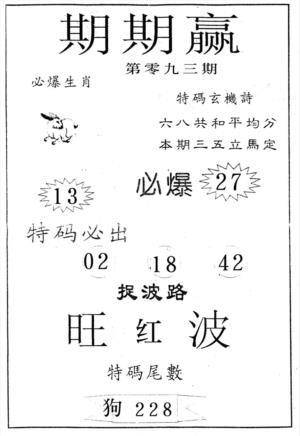 期期赢
第零九三期
必爆生肖
特碼玄機詩
六八共和平均分
本期三五立馬定
13 必爆 27
特码必出
02 18 42
捉波路
旺红波
特碼尾數
狗 228